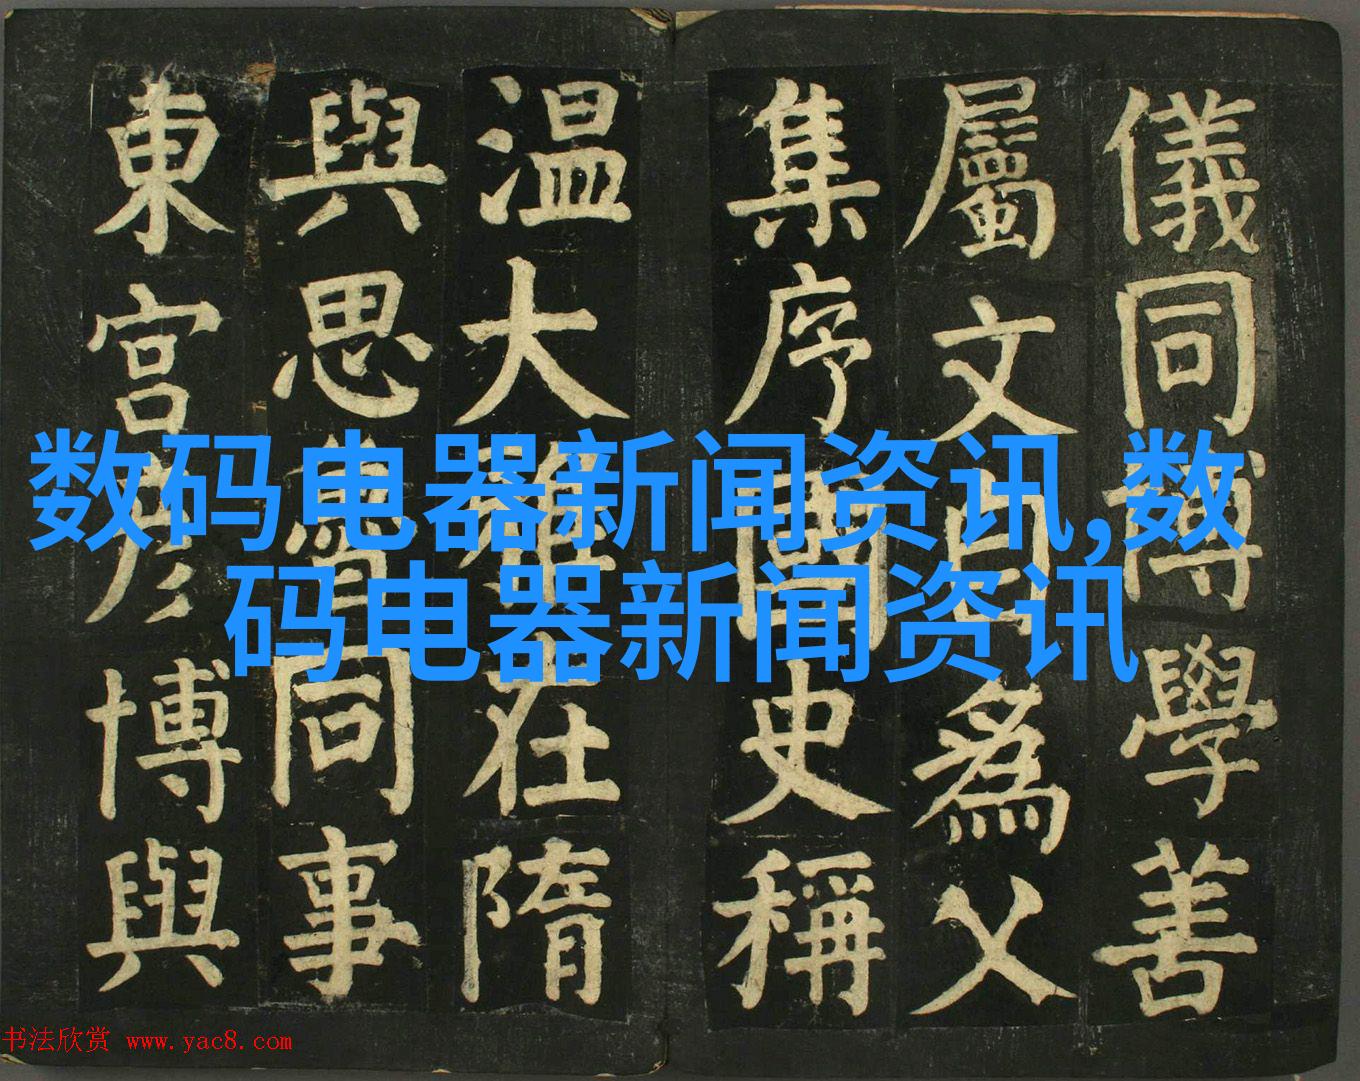 儀同博學善
屬文自為父
集序國史稱
温大雅在隋
與思魯同事
東宮彦博與
数码电器新闻资讯,数
码电器新闻资讯
书法欣赏 www.yac8.com